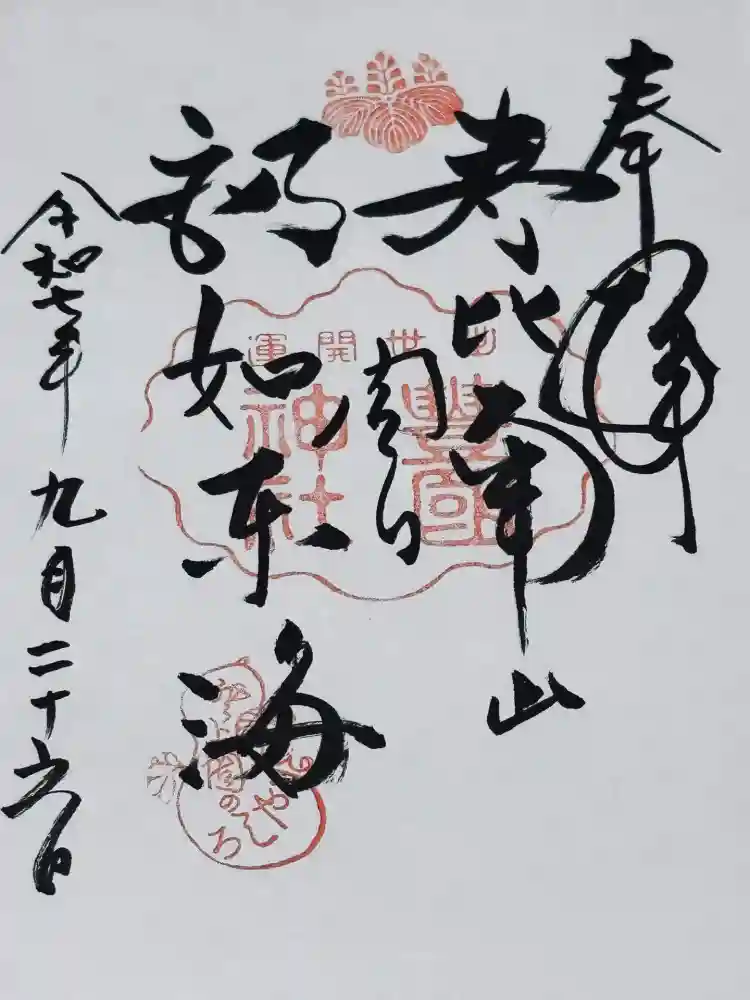 奉拝
寿比南山
福如東海
令和七年 九月二十六日
出世開運
豊国
神社